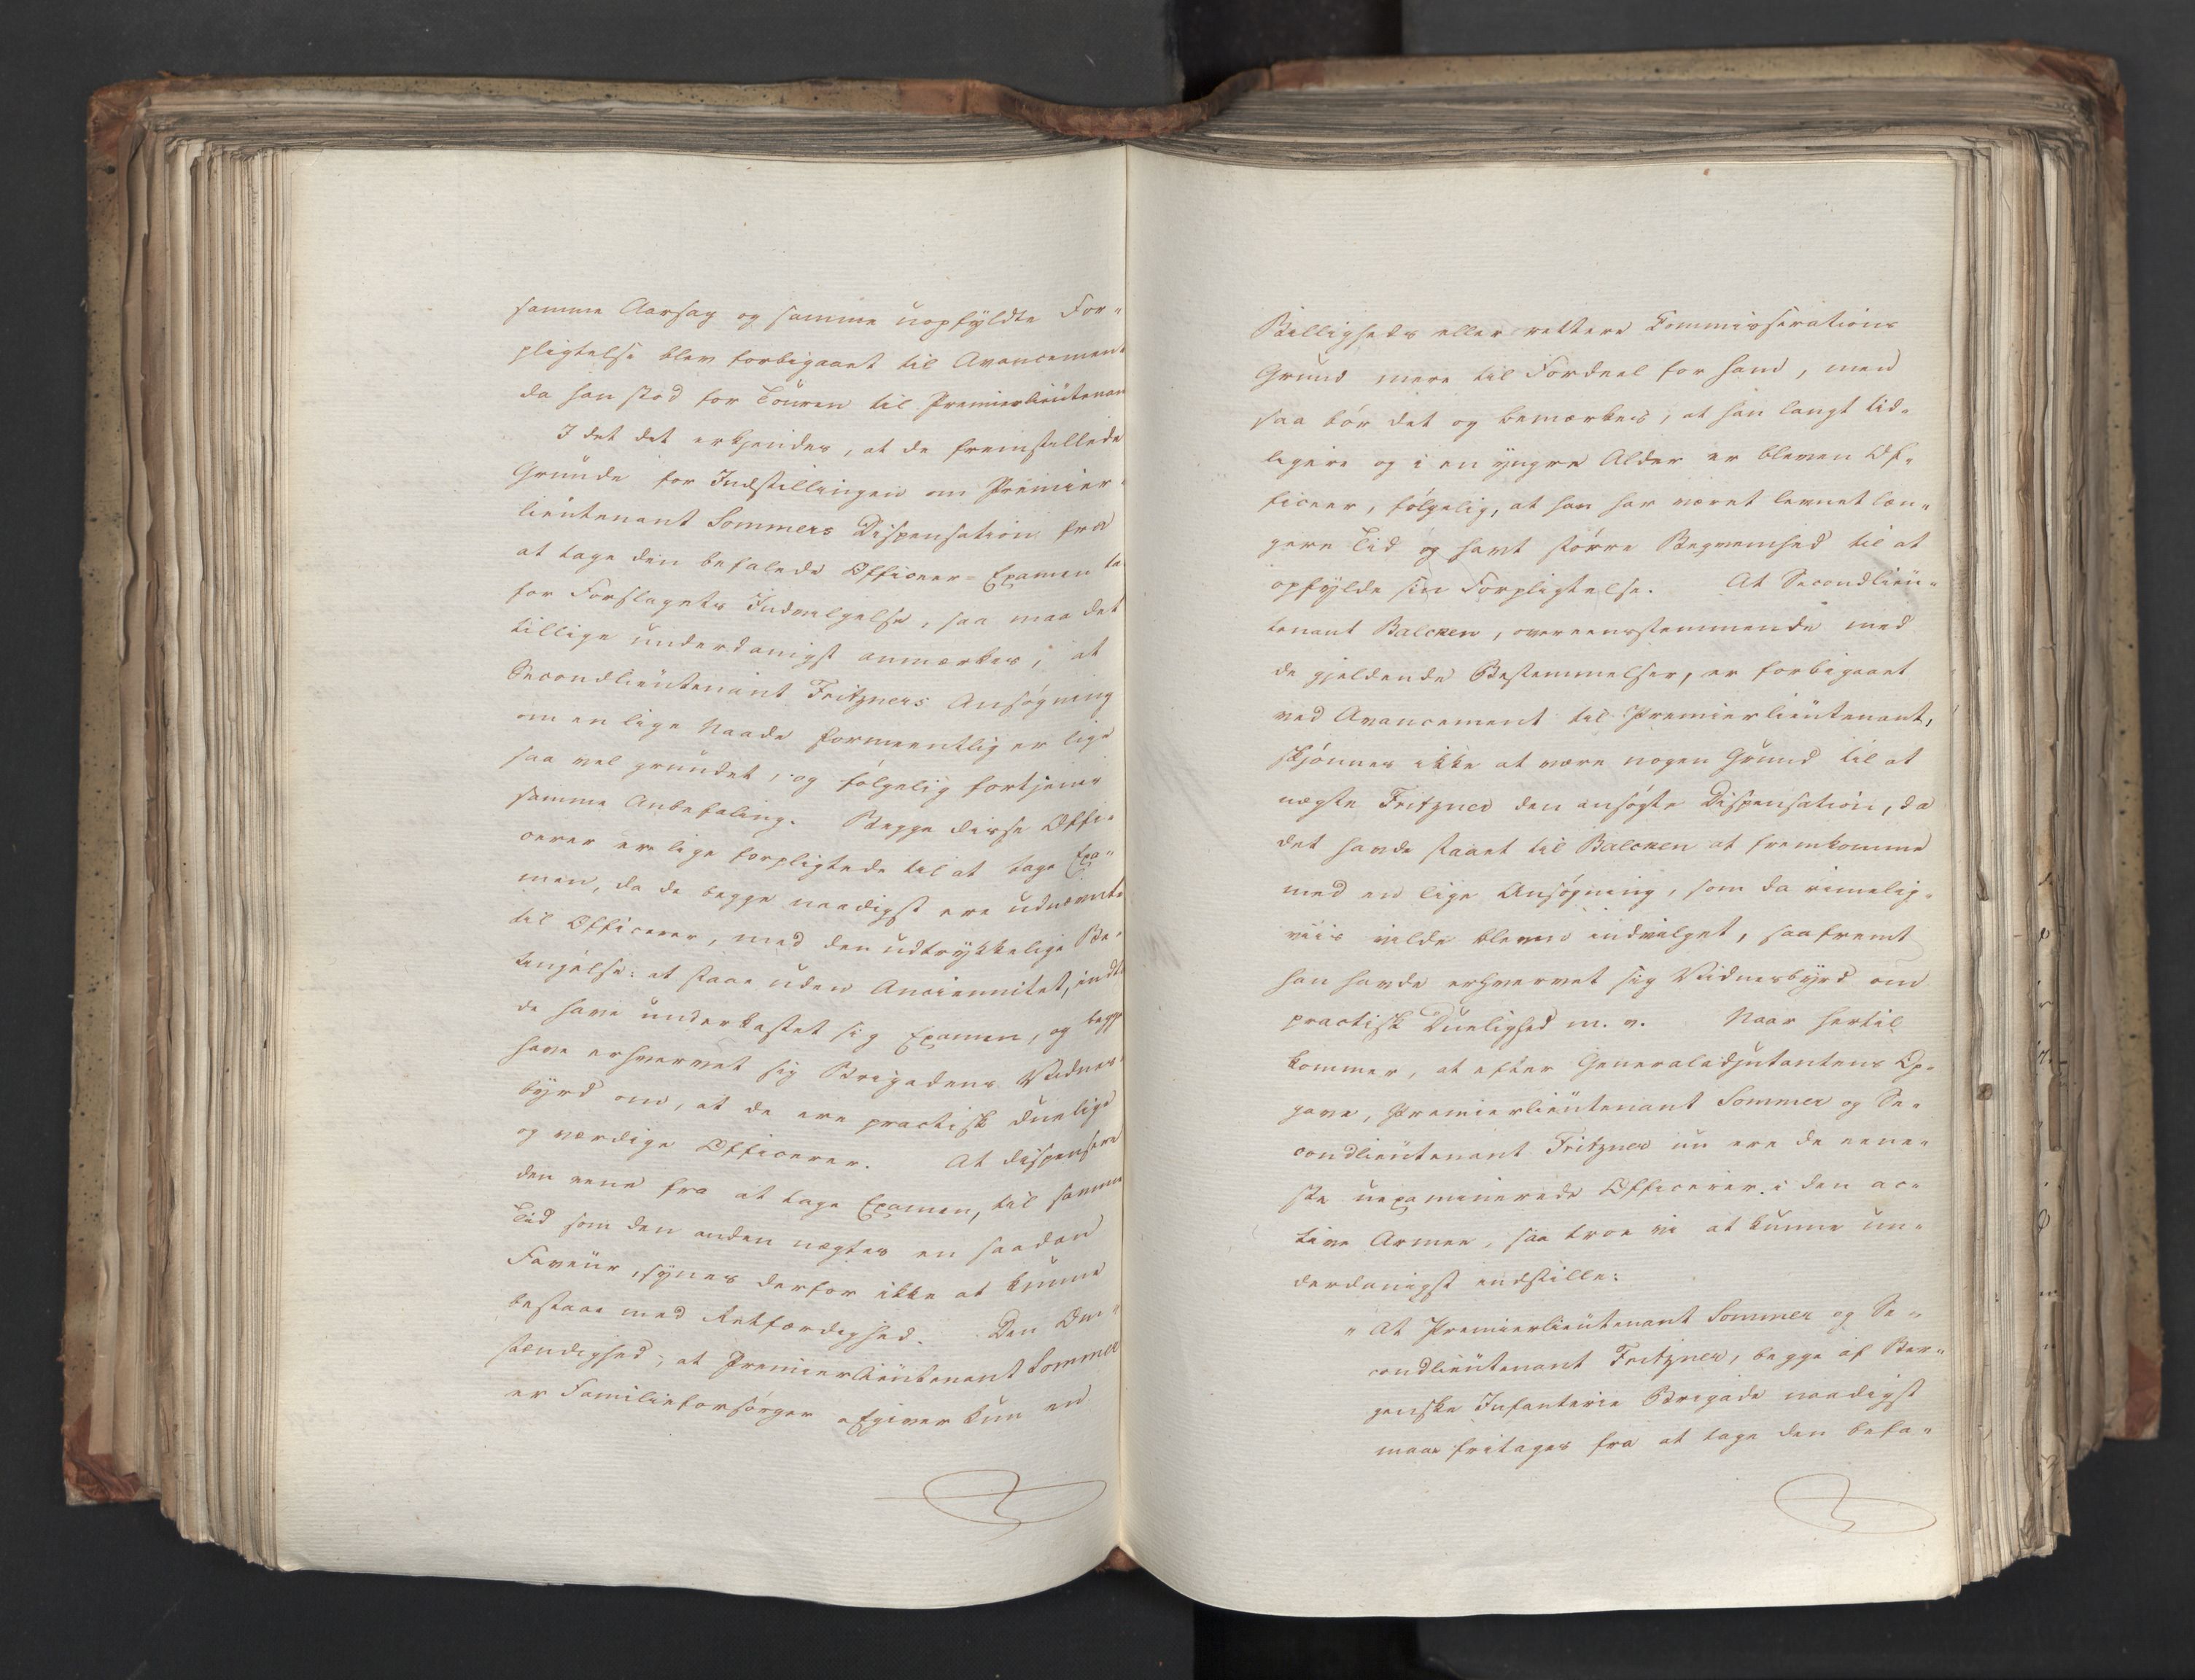 samme Aarsag og samme uopfyldte For-
pligtelse blev forbigaaet til Avancement
da han stod for Touren til Premierlieutenan
I det det erkjendes, at de fremstillede
Grunde for Indstillingen om Premier-
lieutenant Sommers Dispensation fra
at tage den befalede Officeer-Examen ta-
for Forslagets Indvilgelse, saa maa det
tillige underdanigst anmærkes, at
Secondlieutenant Fritzners Ansøgning
om en lige Naade formeentlig er lige
saa vel grundet, og følgelig fortjener
samme Anbefaling. Begge disse Offi-
cerer ere lige forpligtede til at tage Exa-
men, da de begge naadigst ere udnævnte
til Officerer, med den udtrykkelige Be-
tingelse: at staae uden Anciennitet, indtil
de have underkastet sig Examen, og begge
have erhvervet sig Brigadens Vidnes-
byrd om, at de ere practisk duelige
og værdige Officerer. At dispensere
den eene fra at tage Examen, til samme
Tid som den anden nægtes en saadan
Faveur, synes derfor ikke at kunne
bestaae med Retfærdighed. Den Om-
stændighed, at Premierlieutenant Sommer
er Familieforsørger afgiver kun en
Billigheds eller rettere Commisserations
Grund mere til Fordeel for ham, men
saa bør det og bemærkes, at han langt tid-
ligere og i en yngre Alder er bleven Of-
ficeer, følgelig, at han har været levnet læn-
gere Tid og havt større Beqvemhed til at
opfylde sin Forpligtelse. At Secondlieu-
tenant Balchen, overeensstemmende med
de gjeldende Bestemmelser, er forbigaaet
ved Avancement til Premierlieutenant,
skjønnes ikke at være nogen Grund til at
nægte Fritzner den ansøgte Dispensation, da
det havde staaet til Balchen at fremkomme
med en lige Ansøgning, som da rimelig-
viis vilde bleven indvilget, saafremt
han havde erhvervet sig Vidnesbyrd om
practisk Duelighed m. v. Naar hertil
kommer, at efter Generaladjutantens Op-
gave, Premierlieutenant Sommer og Se-
condlieutenant Fritzner nu ere de eene-
ste uexaminerede Officerer i den ac-
tive Armee, saa troe vi at kunne un-
derdanigst indstille:
"At Premierlieutenant Sommer og Se-
condlieutenant Fritzner, begge af Ber-
genske Infanterie Brigade naadigst
maae fritages fra at tage den befa-